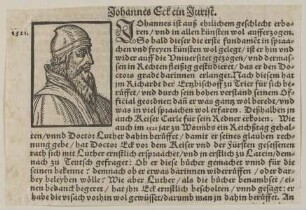 Johannes Eck ein Jurist.
1521.
Johannes ist auß ehrlichem geschlecht erbo-
ren / vnd in allen künsten wol aufferzogen.
So bald dieser die erste fundament in spraa-
chen vnd freyen künsten wol gelegt / ist er hin vnd
wider auff die Vniuersitet gezogen / vnd dermas-
sen in Rechten fleissig gestudieret / das er den Do-
ctors grade darinnen erlanget. Nach diesem hat
jn Richarde der Ertzbischoff zu Trier für sich be-
rüfft / vnd durch sein hohen verstand seinem Of-
ficial geordnet: daß er was gang vnd breüch / vnd
was in jm yeeden spraachen wol erfaren. Deßhalben jn
auch Keiser Carle für sein Redner erkoren. Wie
auch im 1521 jar zu Wormbs ein Reichstag gehal-
ten / vnnd Doctor Luther dahin berüfft / damit er seines glauben rech-
nung gebe / hat Doctor Eck vor dem Keiser vnd der Fürsten gesessenen
rath sich mit Luther ernstlich erspraachet / vnd jn erstlich zu Latein / dem-
nach zu Teutsch gefraget: Ob er diese bücher gemachet vnnd für die
seinen bekenne: demnach ob er etwas darumb widerrüffen / oder dar-
bey beleyben wölle: Wie aber Luther / als die bücher benamset / ei-
nen bedanck begeret / hat jhn Eck ernstlich bescholten / vnnd gesagt: er
habe die vrsach vorhin wol gewüsset / darumb man jn dahin berüffet. An